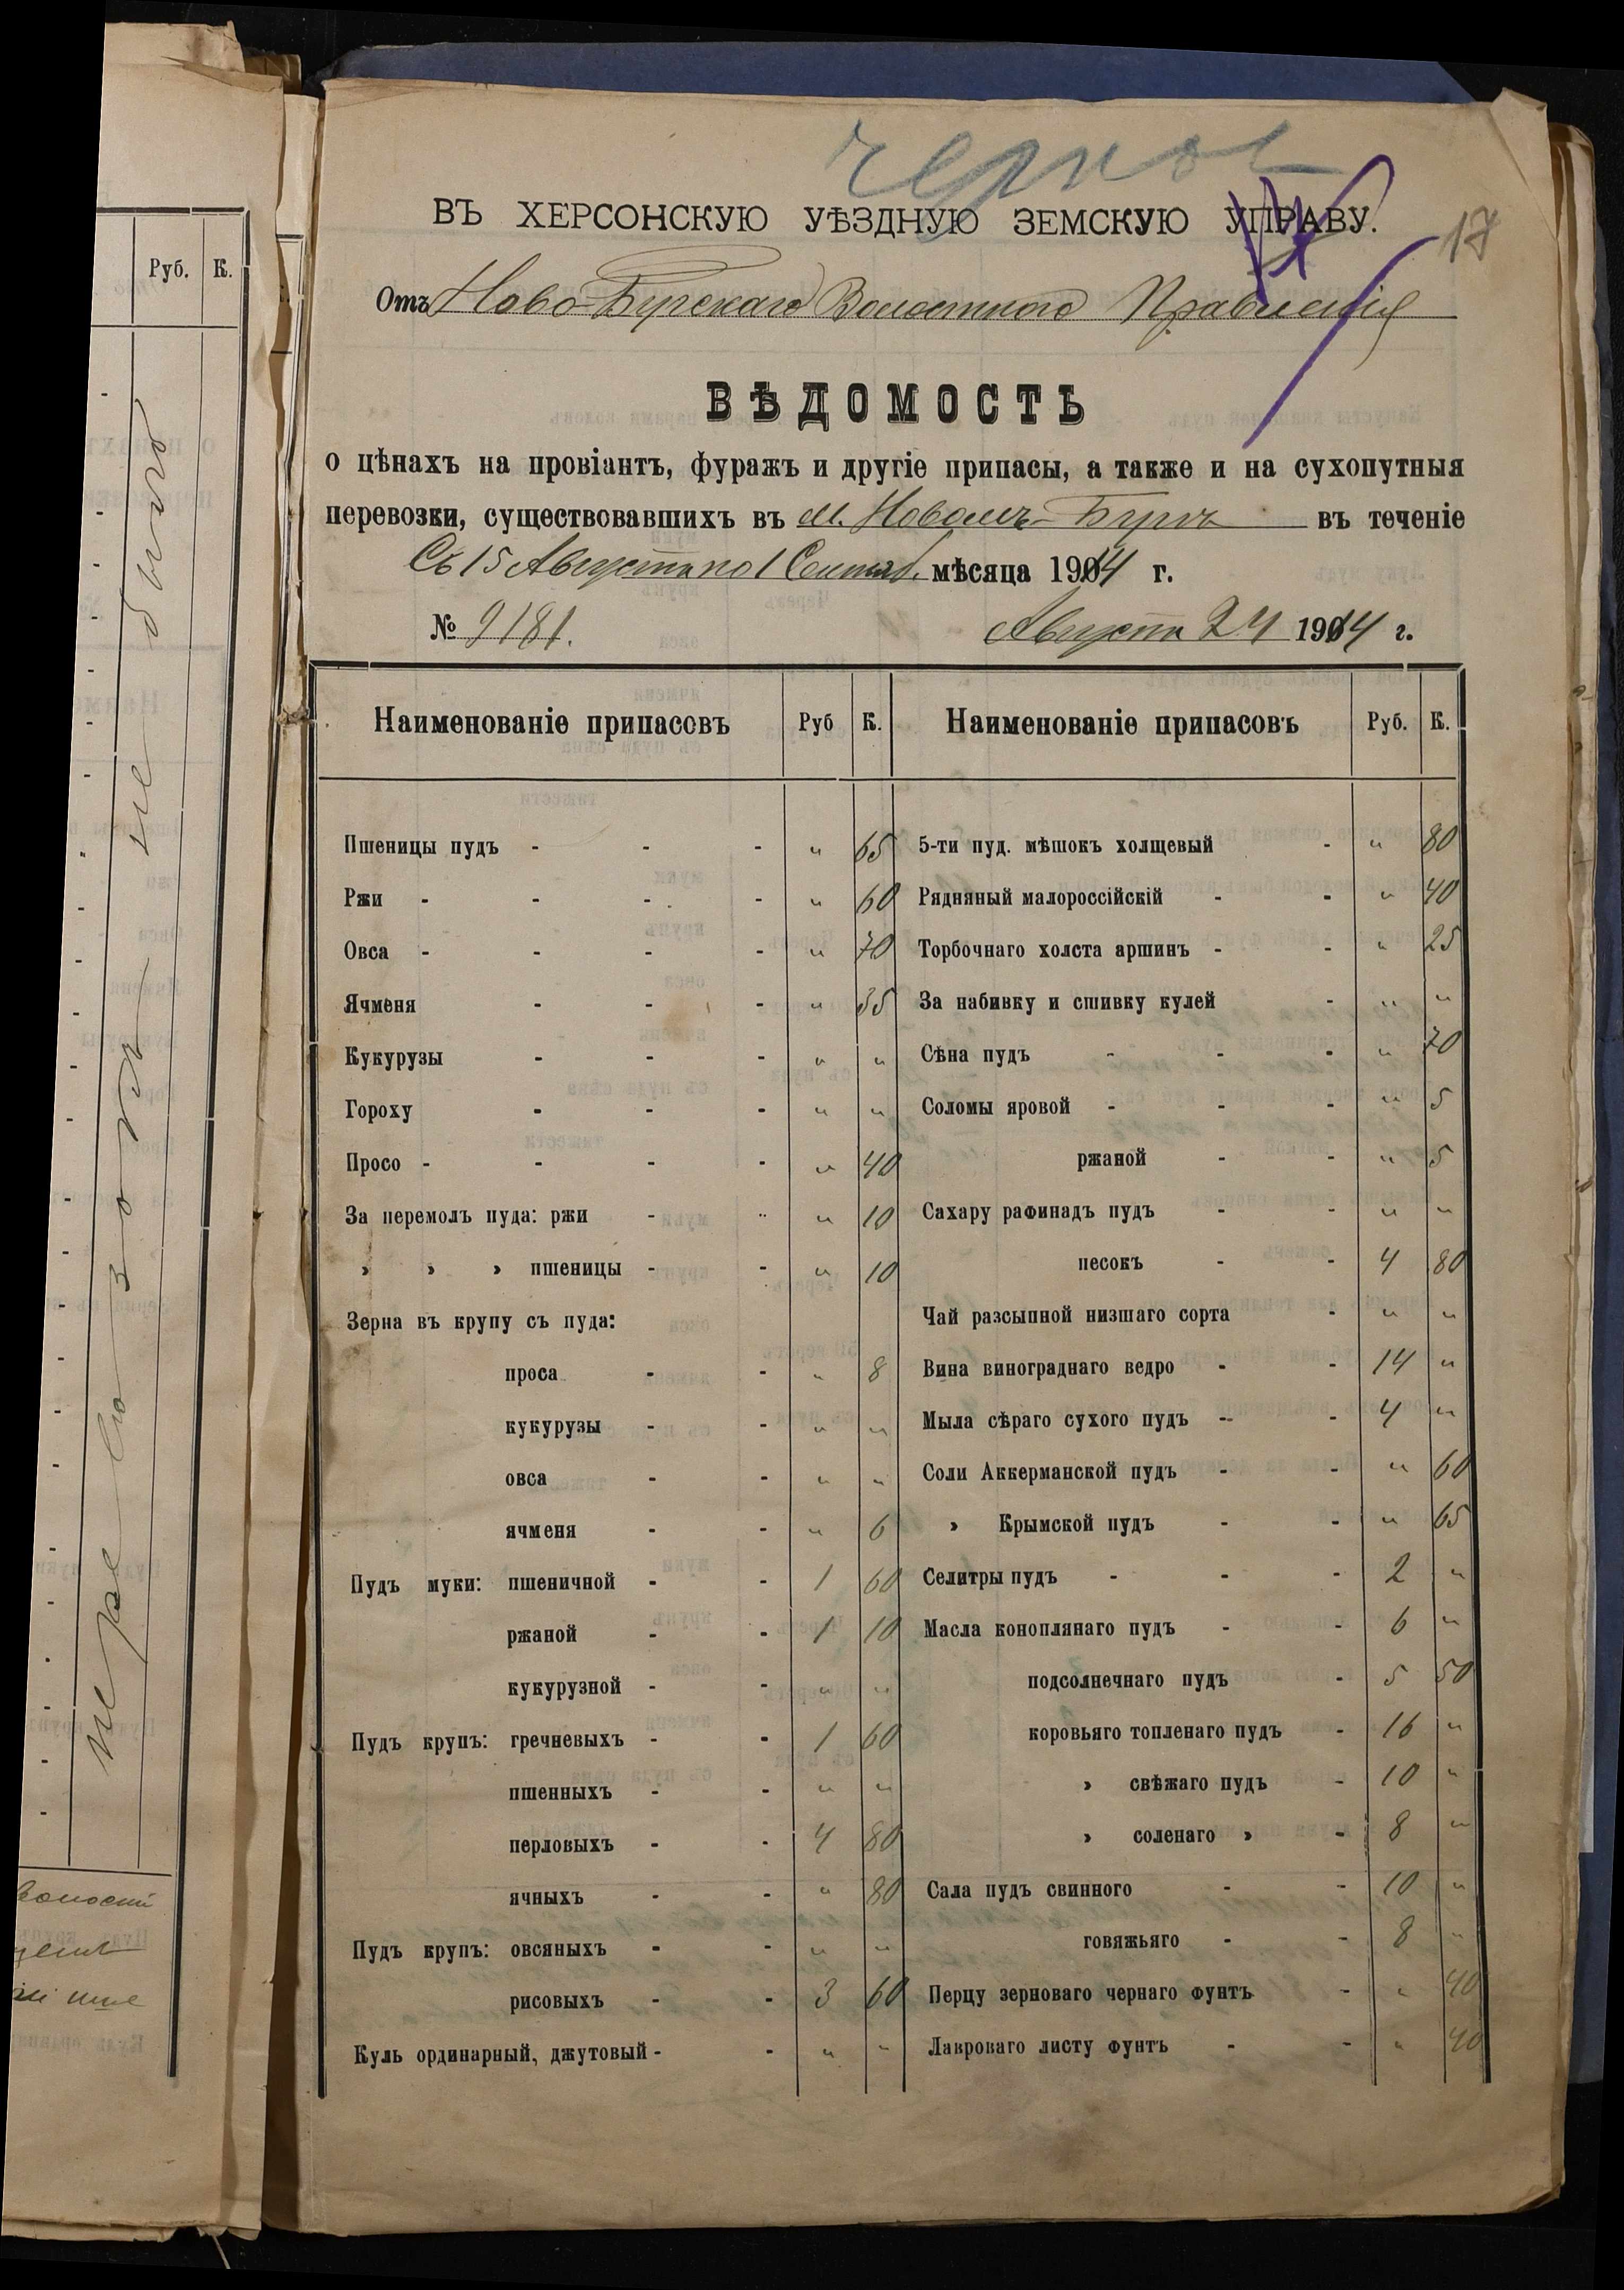 Руб. К.
не было
перевозокъ
волости
черное
ВЪ ХЕРСОНСКУЮ УѢЗДНУЮ ЗЕМСКУЮ УПРАВУ.
17
Отъ Ново-Бугскаго Волостного Правленія
ВѢДОМОСТЬ
о цѣнахъ на провіантъ, фуражъ и другіе припасы, а также и на сухопутныя
перевозки, существовавшихъ въ м. Новомъ-Бугѣ въ теченіе
Съ 15 Августа по 1 Сентяб. мѣсяца 1914 г.
№ 9181. Августа 24 1914 г.
Наименованіе припасовъ Руб К. Наименованіе припасовъ Руб. К.
Пшеницы пудъ - - - " 65 5-ти пуд. мѣшокъ холщевый - " 80
Ржи - - - - " 60 Рядняный малороссійскій - - " 40
Овса - - - - " 70 Торбочнаго холста аршинъ - - " 25
Ячменя - - - " 55 За набивку и сшивку кулей - " "
Кукурузы - - - " " Сѣна пудъ - - - " 70
Гороху - - - " " Соломы яровой - - - " 5
Просо - - - - " 40 ржаной - - " 5
За перемолъ пуда: ржи - " " 10 Сахару рафинадъ пудъ - - " "
» » » пшеницы - - " 10 песокъ - - 4 80
Зерна въ крупу съ пуда: Чай разсыпной низшаго сорта - " "
проса - - " 8 Вина винограднаго ведро - - 14 "
кукурузы - - " " Мыла сѣраго сухого пудъ - - 4 "
овса - - " " Соли Аккерманской пудъ - - " 60
ячменя - - " 6 » Крымской пудъ - - " 65
Пудъ муки: пшеничной - - 1 60 Селитры пудъ - - - 2 "
ржаной - - 1 10 Масла коноплянаго пудъ - - 6 "
кукурузной - - " " подсолнечнаго пудъ - 5 50
Пудъ крупъ: гречневыхъ - - 1 60 коровьяго топленаго пудъ - 16 "
пшенныхъ - - " " » свѣжаго пудъ - 10 "
перловыхъ - - 4 80 » соленаго » - 8 "
ячныхъ - - " 80 Сала пудъ свинного - - 10 "
Пудъ крупъ: овсяныхъ - - " " говяжьяго - - 8 "
рисовыхъ - - 3 60 Перцу зерноваго чернаго фунтъ - " 40
Куль ординарный, джутовый - - " " Лавроваго листу фунтъ - - " 40